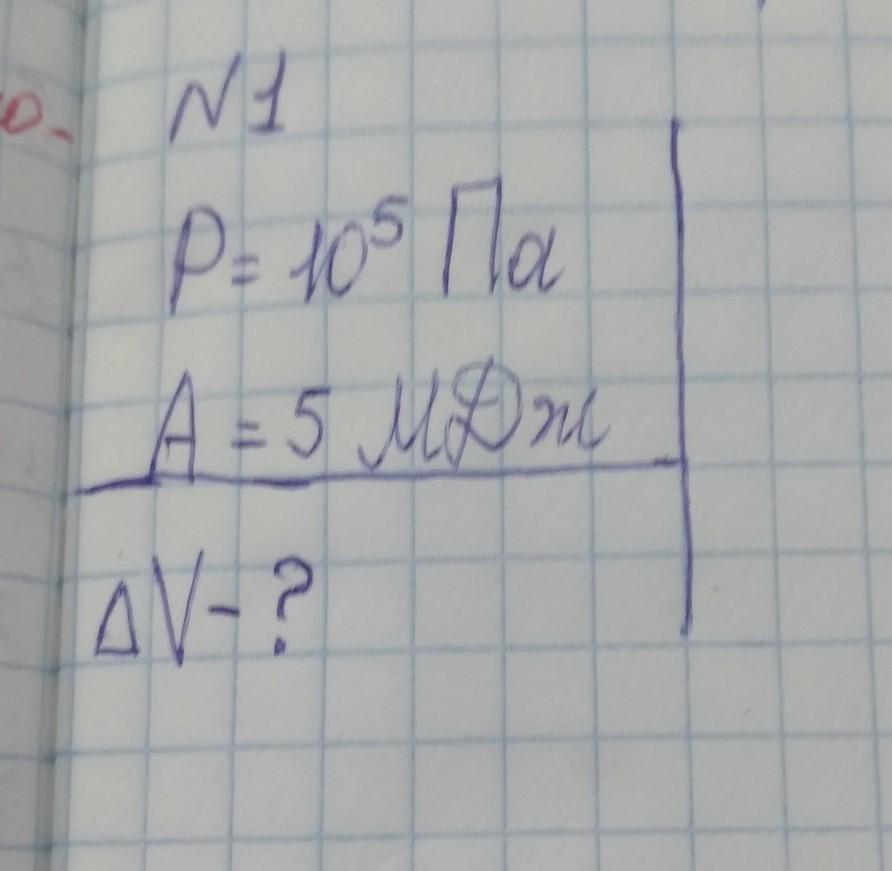 N1
P = 10⁵ Па
A = 5 МДж
ΔV - ?